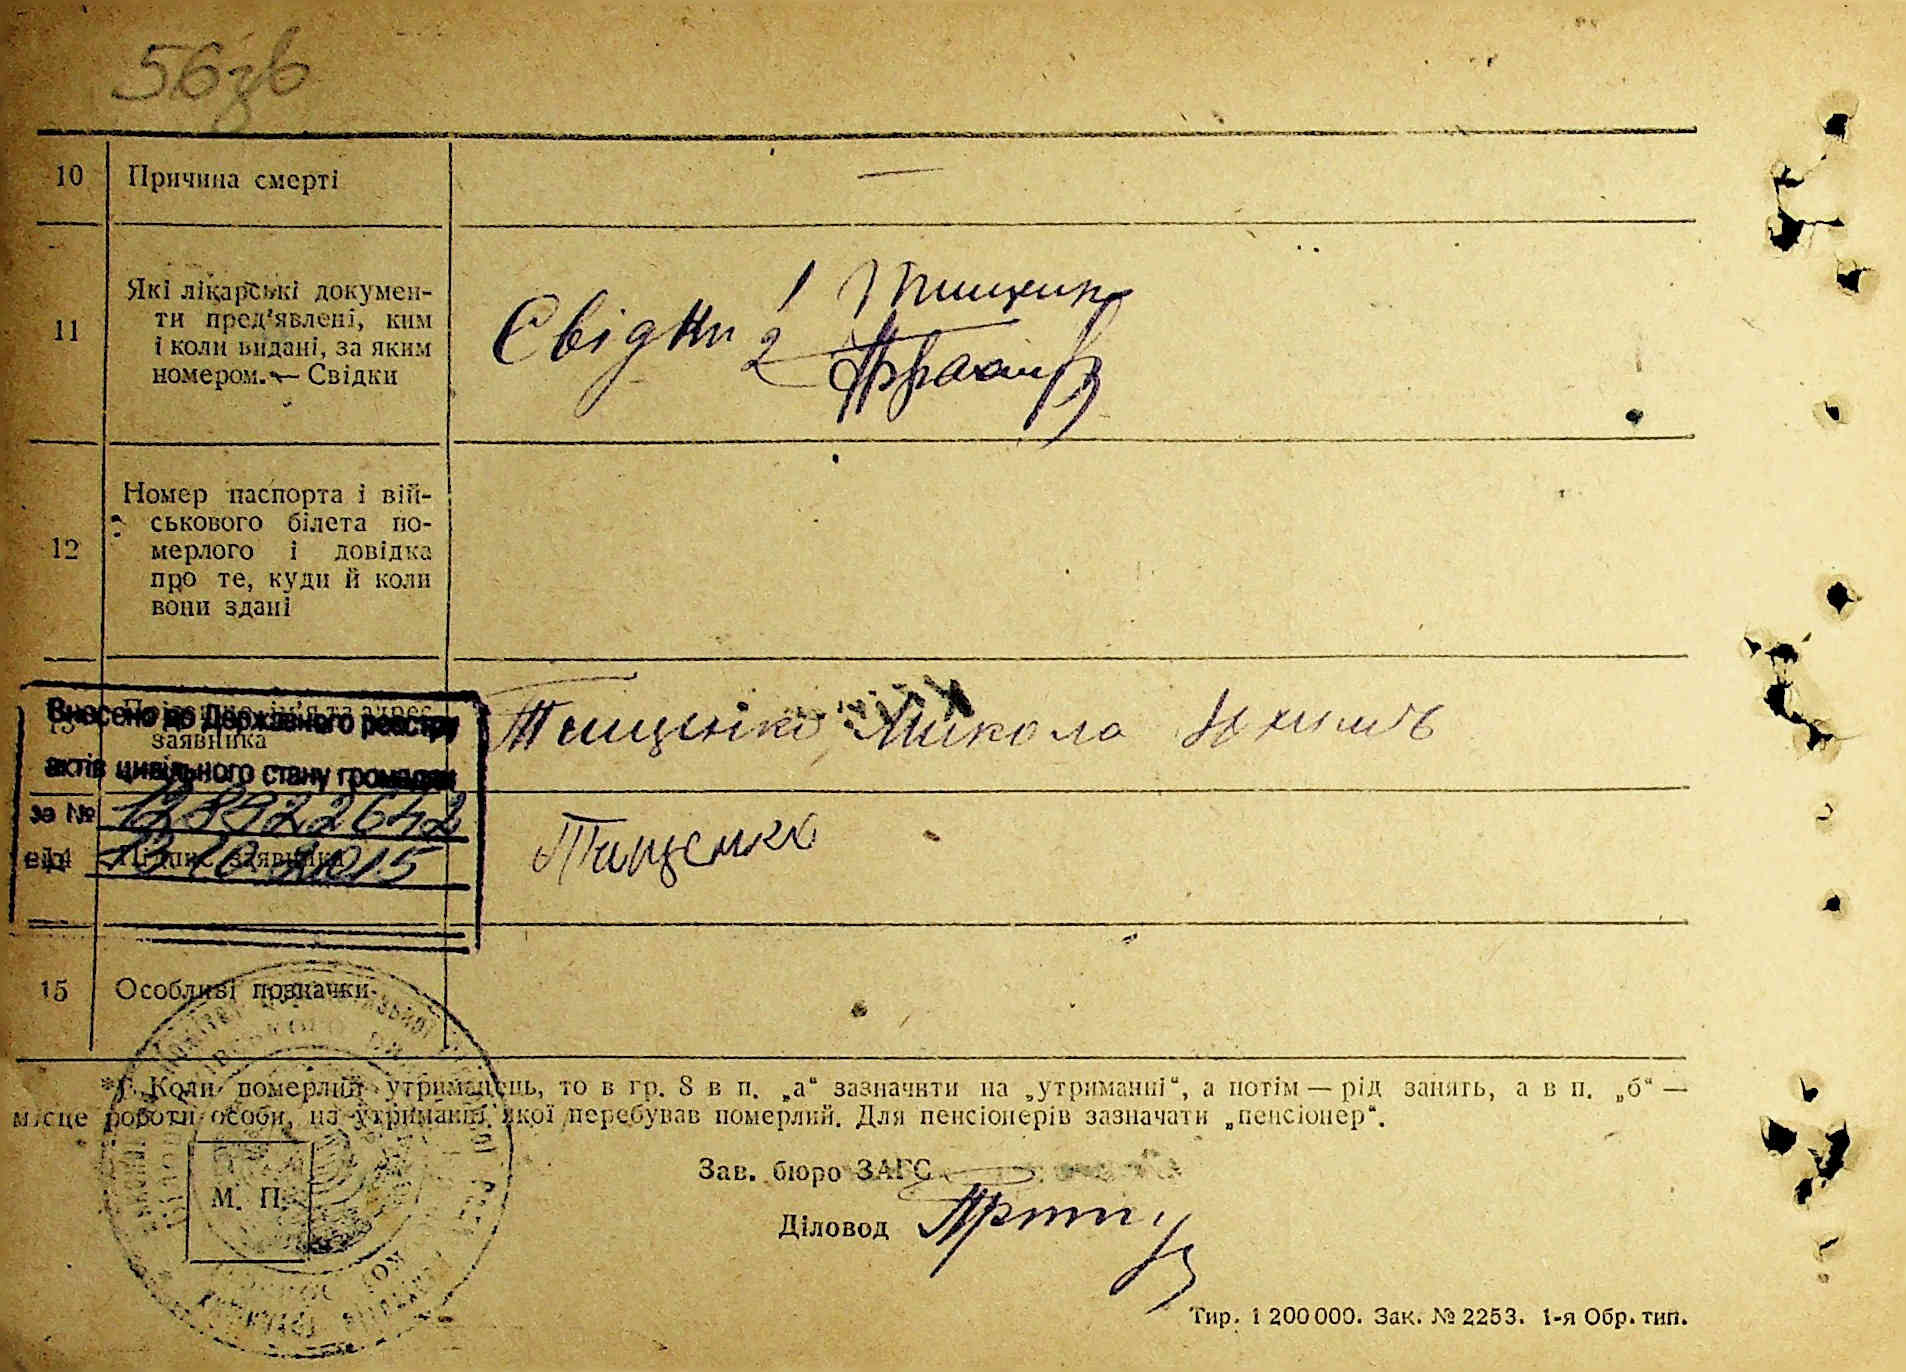 56зв
10 Причина смерті —
11 Які лікарські докумен-
ти пред'явлені, ким
і коли видані, за яким
номером. — Свідки
Свідки 1
2
12 Номер паспорта і вій-
ськового білета по-
мерлого і довідка
про те, куди й коли
вони здані
13
заявника
Тищенко Микола
Внесено до Державного реєстру
актів цивільного стану громадян
за № 128922642
від 13.10.2015
14 Підпис заявника
Тищенко
15 Особливі позначки
*) Коли померлий утриманець, то в гр. 8 в п. „а“ зазначити на „утриманні“, а потім — рід занять, а в п. „б“ —
місце роботи особи, на утриманні якої перебував померлий. Для пенсіонерів зазначати „пенсіонер“.
Зав. бюро ЗАГС
М. П.
Діловод
Тир. 1 200 000. Зак. № 2253. 1-я Обр. тип.